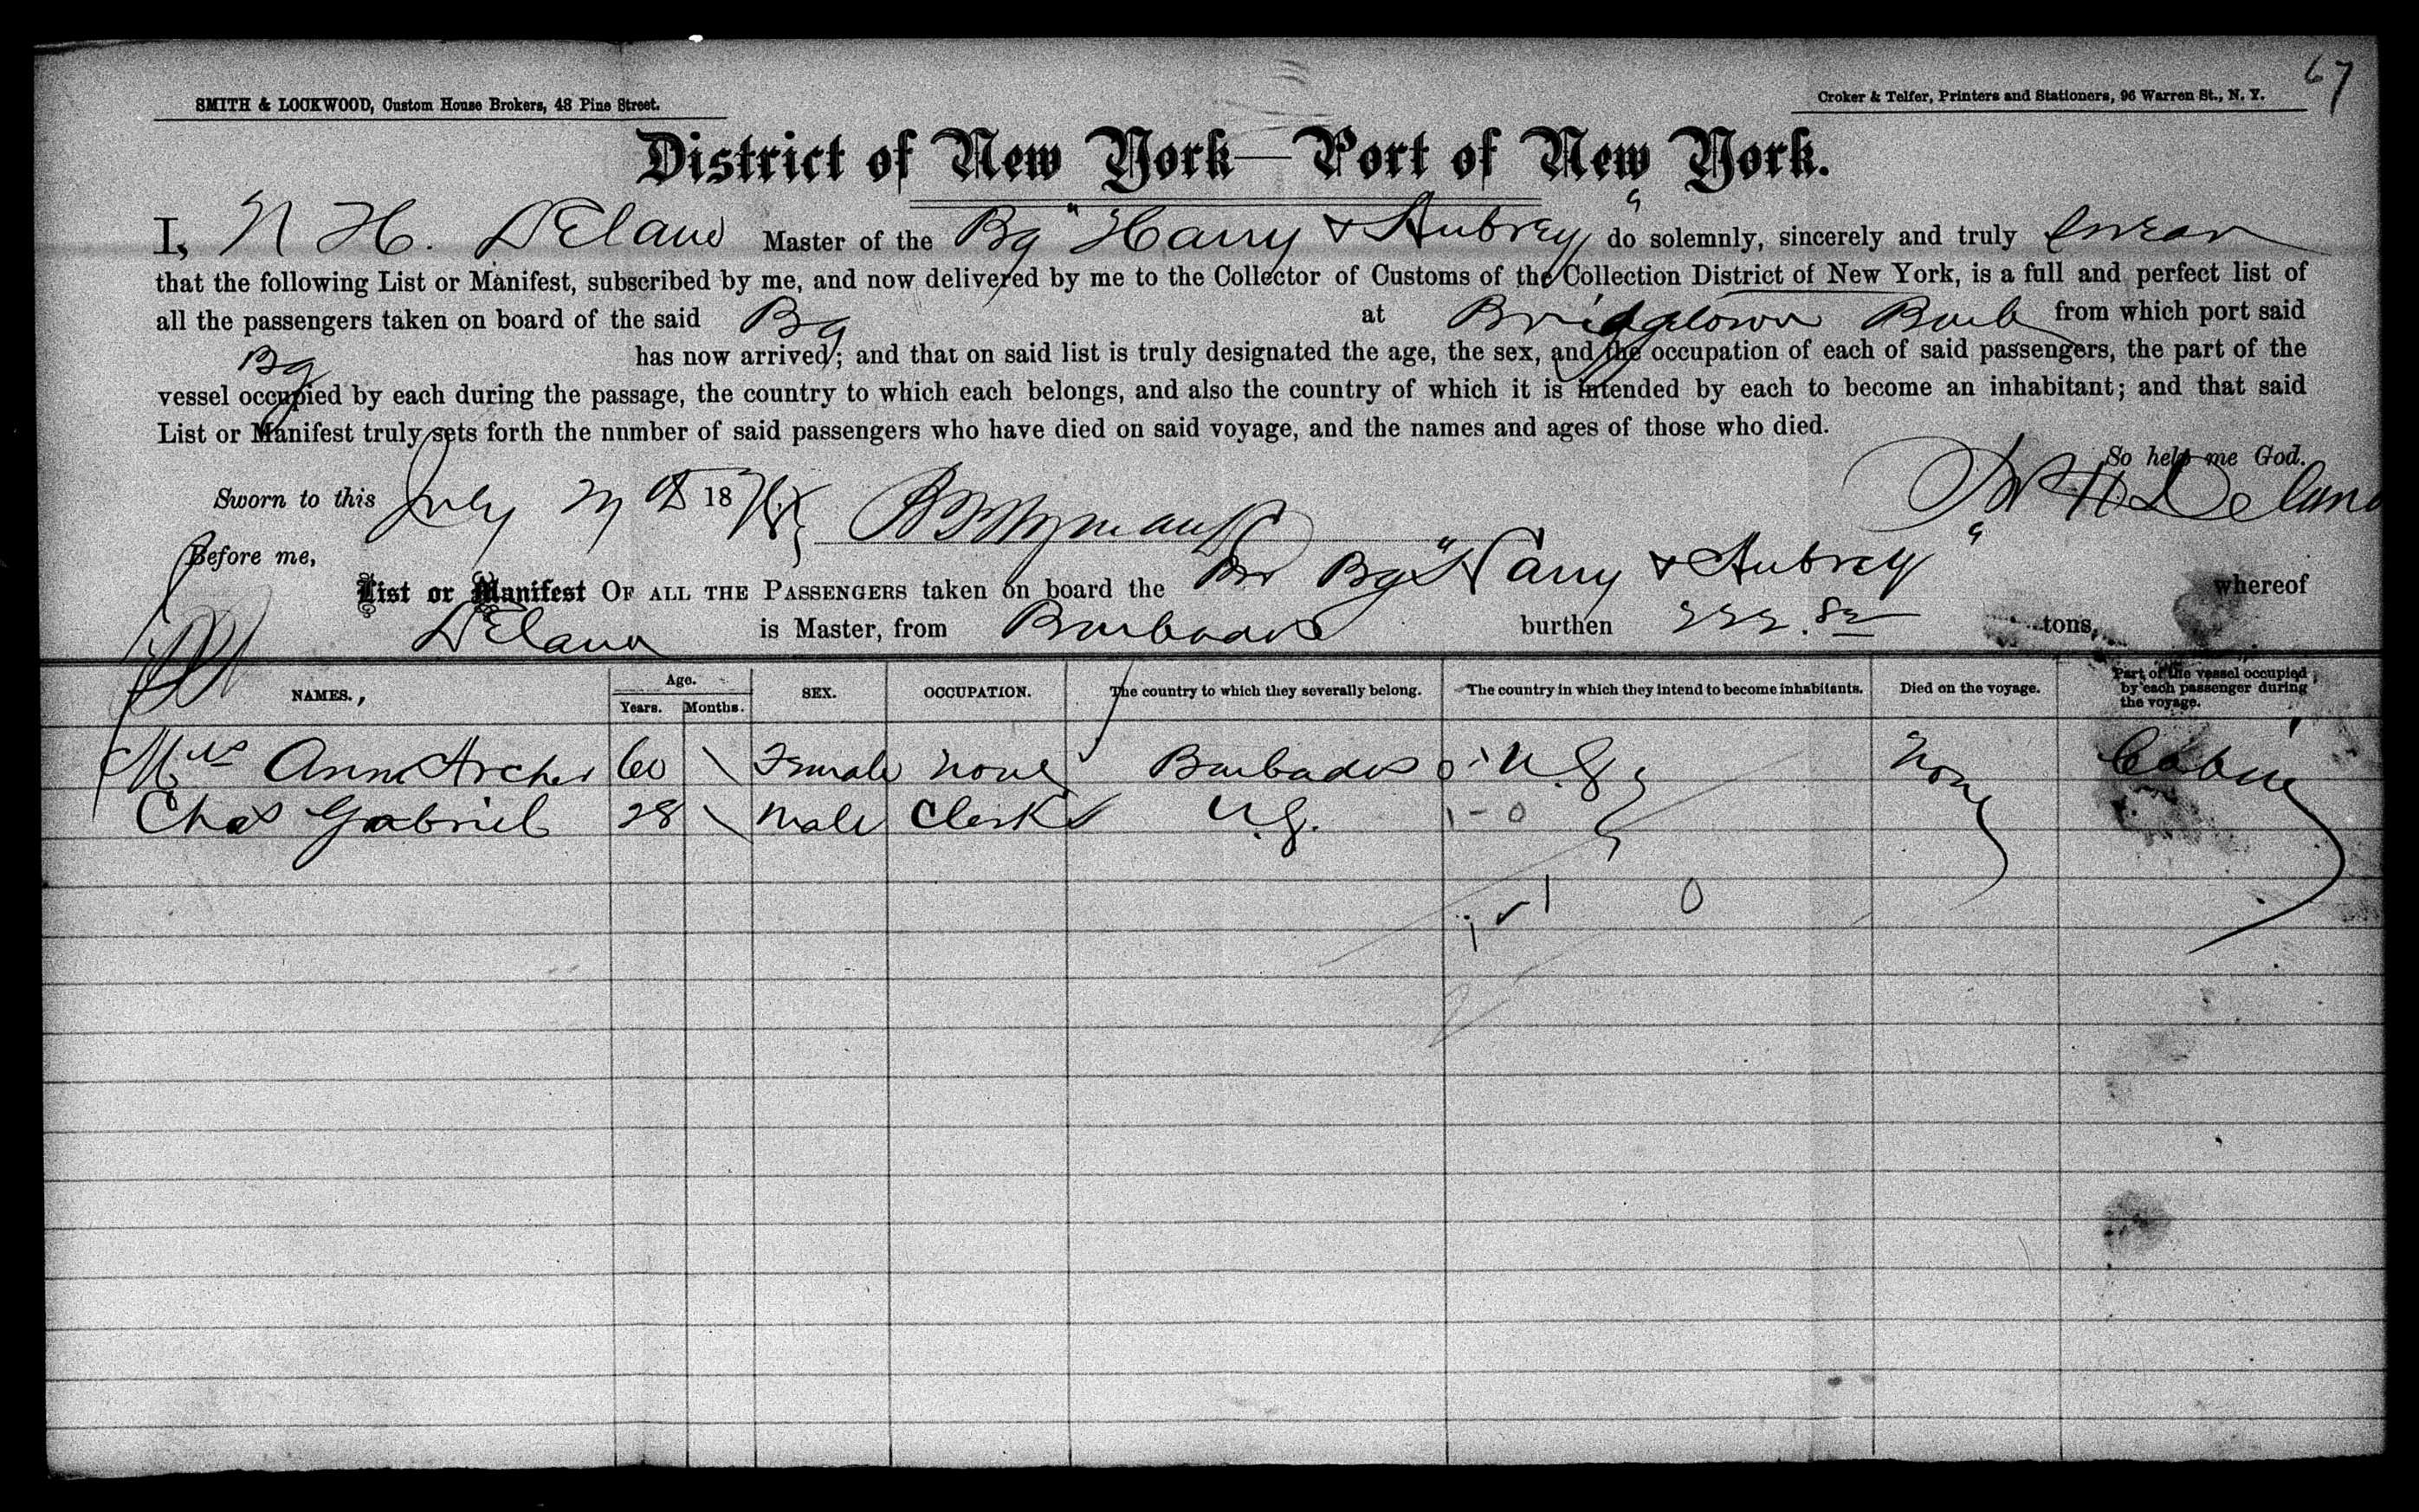 67
SMITH & LOCKWOOD, Custom House Brokers, 48 Pine Street.
Croker & Telfer, Printers and Stationers, 96 Warren St., N. Y.
District of New York—Port of New York.
I, N H. DElano Master of the Bg "Harry & Aubrey" do solemnly, sincerely and truly swear
that the following List or Manifest, subscribed by me, and now delivered by me to the Collector of Customs of the Collection District of New York, is a full and perfect list of
all the passengers taken on board of the said Bg at Bridgetown Barb from which port said
Bg has now arrived; and that on said list is truly designated the age, the sex, and the occupation of each of said passengers, the part of the
vessel occupied by each during the passage, the country to which each belongs, and also the country of which it is intended by each to become an inhabitant; and that said
List or Manifest truly sets forth the nnmber of said passengers who have died on said voyage, and the names and ages of those who died.
So help me God.
Sworn to this July 18 N H Delano
Before me,
List or Manifest OF ALL THE PASSENGERS taken on board the Br Bg "Harry & Aubrey" whereof
DElano is Master, from Barbados burthen tons,
NAMES. Age. Years. Months. SEX. OCCUPATION. The country to which they severally belong. The country in which they intend to become inhabitants. Died on the voyage. Part of the vessel occupied by each passenger during the voyage.
Mrs Ann Archer 60 \ Female none Barbados U.S. None Cabin
Chas Gabriel 28 \ Male Clerk U.S. 1-0
1 0